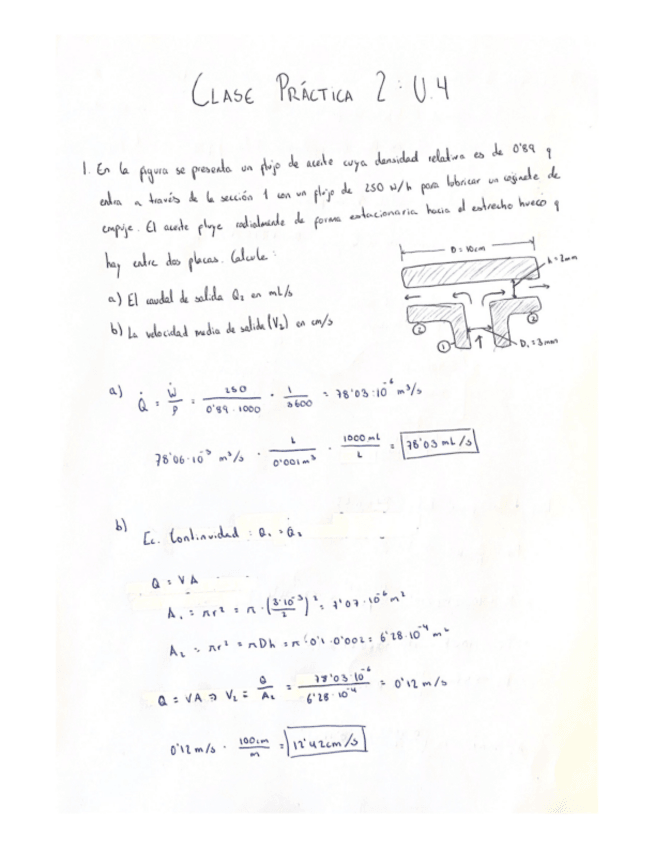 CLASE PRÁCTICA 2: U.4
1. En la figura se presenta un flujo de aceite cuya densidad relativa es de 0'89 y
entra a través de la sección 1 con un flujo de 250 N/h para lubricar un cojinete de
empuje. El aceite fluye radialmente de forma estacionaria hacia el estrecho hueco q
hay entre dos placas. Calcule:
a) El caudal de salida Q₂ en mL/s
b) La velocidad media de salida (V₂) en cm/s
D = 10cm
h = 2mm
② ②
① D₁ = 3mm
a) Q̇ = Ẇ/ρ = 250/(0'89 · 1000) · 1/3600 = 78'03 · 10⁻⁶ m³/s
78'06 · 10⁻³ m³/s · L/0'001m³ · 1000 mL/L = 78'03 mL/s
b) Ec. Continuidad: Q₁ = Q₂
Q = VA
A₁ = πr² = π · (3·10⁻³/2)² = 7'07 · 10⁻⁶ m²
A₂ = πr² = πDh = π · 0'1 · 0'002 = 6'28 · 10⁻⁴ m²
Q = VA → V₂ = Q/A₂ = 78'03·10⁻⁶/6'28·10⁻⁴ = 0'12 m/s
0'12 m/s · 100cm/m = 12'42cm/s